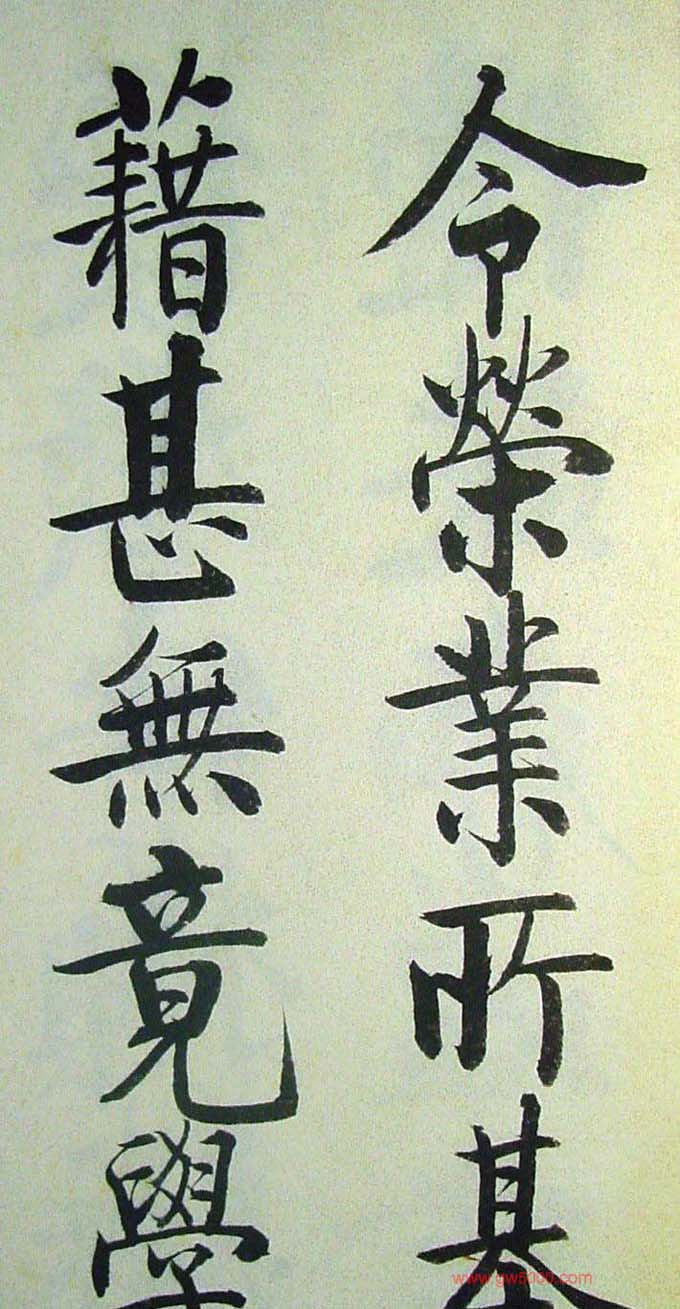 令榮業所基
藉甚無竟學
www.gw5000.com